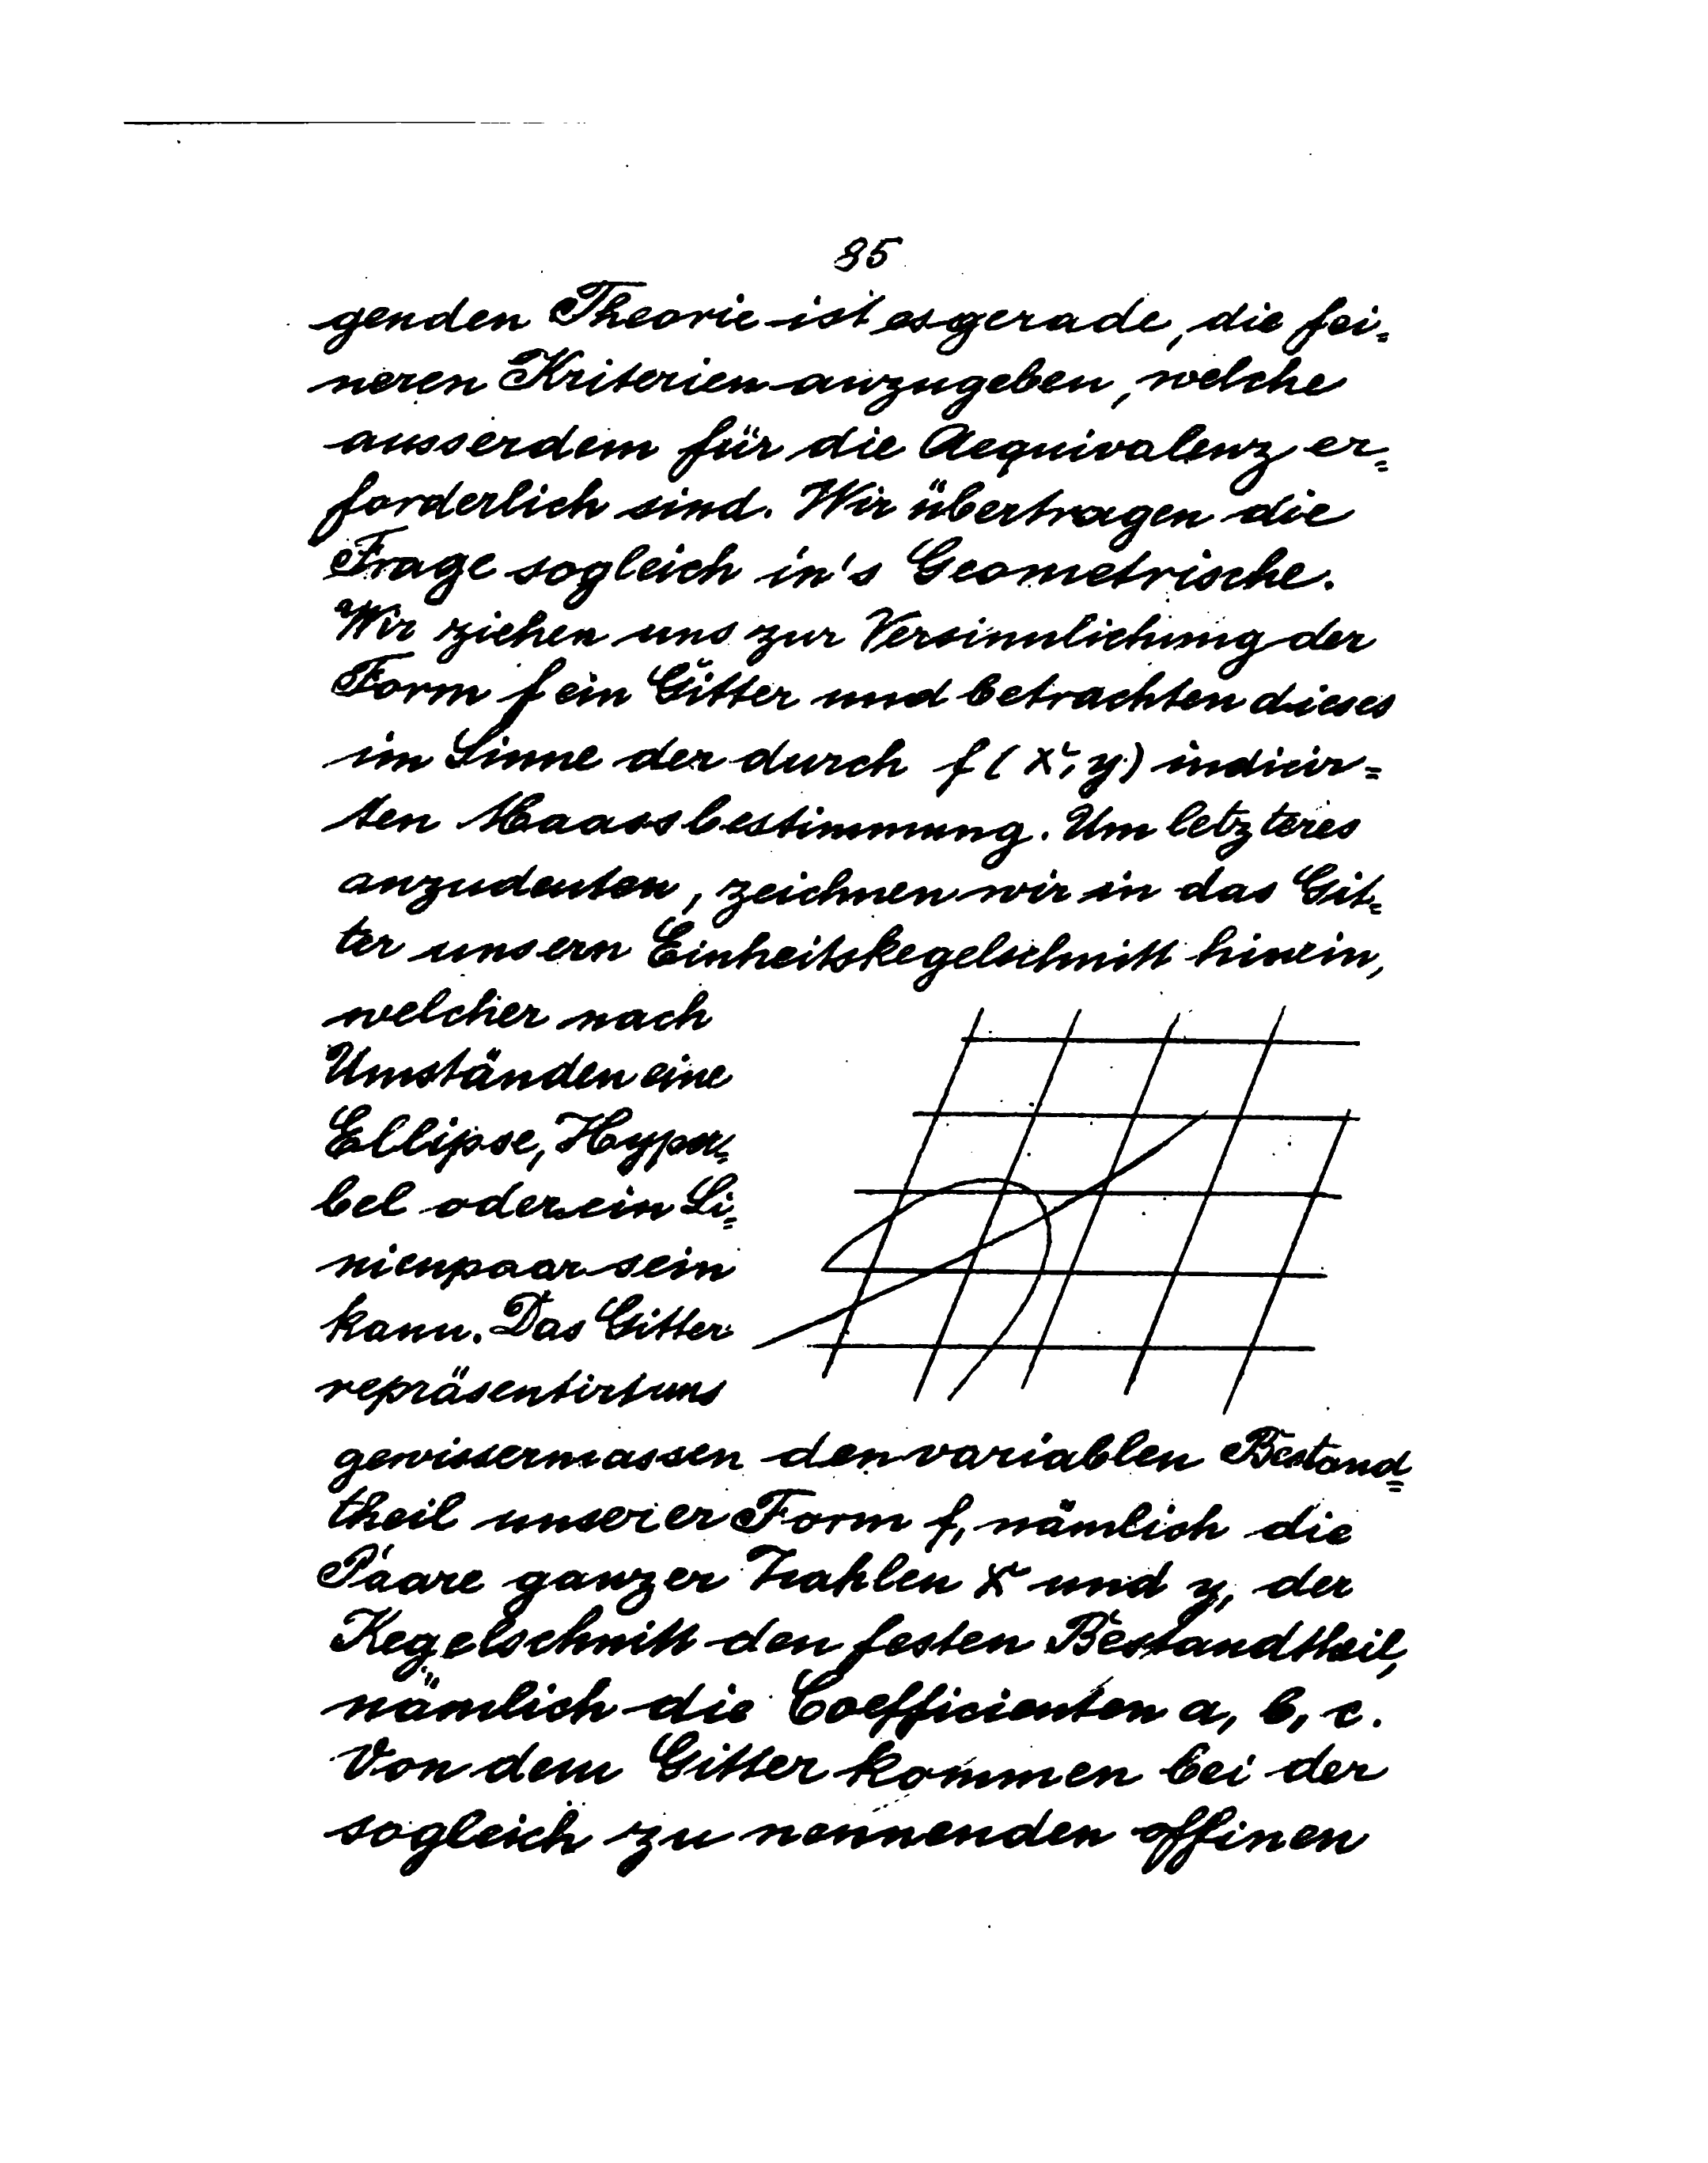 85
genden Theorie ist es gerade, die fei=
neren Kriterien anzugeben, welche
ausserdem für die Aequivalenz er=
forderlich sind. Wir übertragen die
Frage sogleich in's Geometrische.
Wir ziehen uns zur Versinnlichung der
Form f ein Gitter und betrachten dieses
im Sinne der durch f(x, y) indicir=
ten Maassbestimmung. Um letzteres
anzudeuten, zeichnen wir in das Git=
ter unsern Einheitskegelschnitt hinein,
welcher nach
Umständen eine
Ellipse, Hyper=
bel oder ein Li=
nienpaar sein
kann. Das Gitter
repräsentirt uns
gewissermassen den variablen Bestand=
theil unserer Form f, nämlich die
Paare ganzer Zahlen x und y, der
Kegelschnitt den festen Bestandtheil,
nämlich die Coefficienten a, b, c.
Von dem Gitter kommen bei der
sogleich zu nennenden affinen